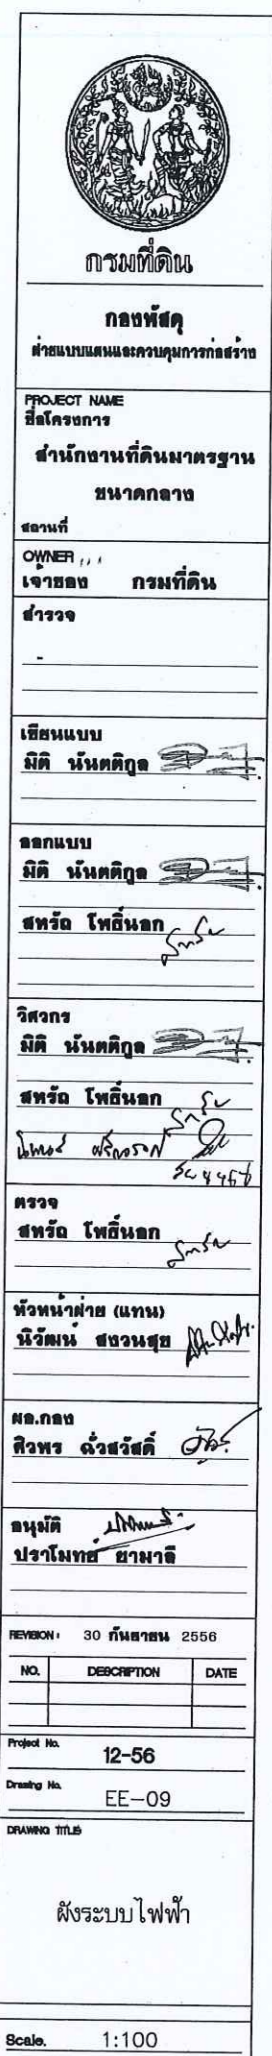 กรมที่ดิน
กองพัสดุ
ฝ่ายแบบแผนและควบคุมการก่อสร้าง
PROJECT NAME
ชื่อโครงการ
สำนักงานที่ดินมาตรฐาน
ขนาดกลาง
สถานที่
OWNER
เจ้าของ กรมที่ดิน
สำรวจ
-
เขียนแบบ
มิติ นันตติกูล
ออกแบบ
มิติ นันตติกูล
สหรัถ โพธิ์นอก
วิศวกร
มิติ นันตติกูล
สหรัถ โพธิ์นอก
ตรวจ
สหรัถ โพธิ์นอก
หัวหน้าฝ่าย (แทน)
นิวัฒน์ สงวนสุข
ผอ.กอง
ศิวพร ฉั่วสวัสดิ์
อนุมัติ
ปราโมทย์ ยามาลี
REVISION: 30 กันยายน 2556
NO. DESCRIPTION DATE
Project No.
12-56
Drawing No.
EE-09
DRAWING TITLE
ผังระบบไฟฟ้า
Scale. 1:100